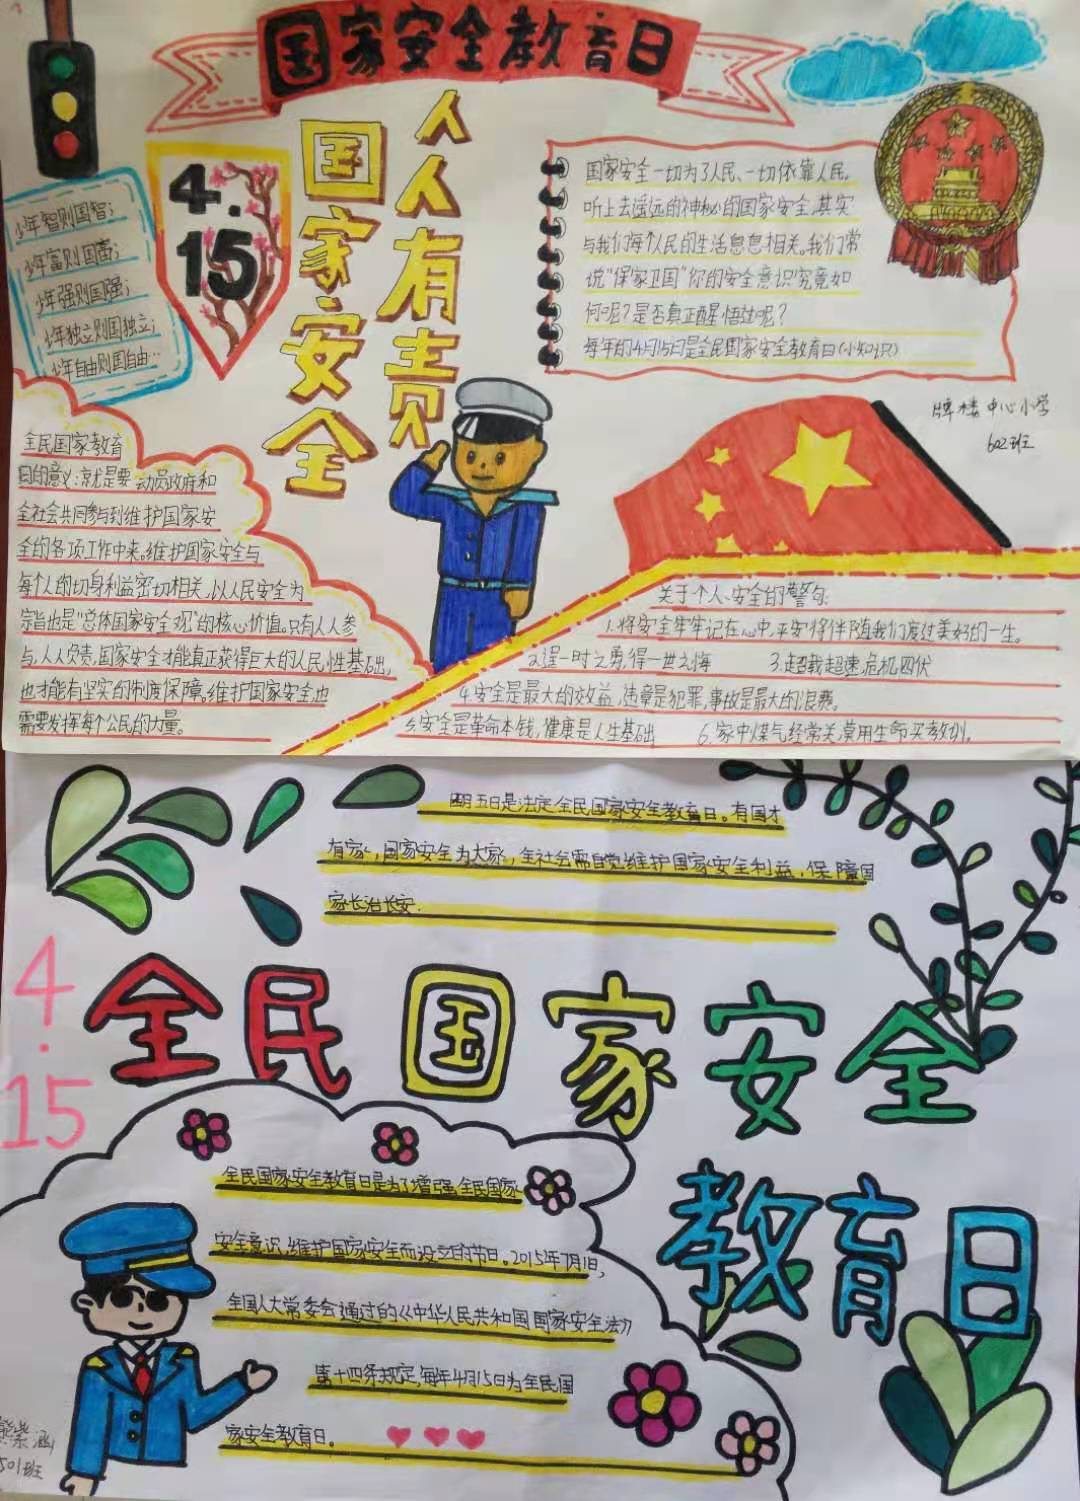 国家安全教育日
人人有责
国家安全
4.15
少年智则国智;
少年富则国富;
少年强则国强;
少年独立则国独立;
少年自由则国自由…
国家安全一切为了人民、一切依靠人民,
听上去遥远的神秘的国家安全,其实
与我们每个人民的生活息息相关。我们常
说“保家卫国”你的安全意识究竟如
何呢?是否真正醒悟过呢?
每年的4月15日是全民国家安全教育日(小知识)
牌楼中心小学
602班
全民国家教育
日的意义:就是要动员政府和
全社会共同参与到维护国家安
全的各项工作中来。维护国家安全与
每个人的切身利益密切相关,以人民安全为
宗旨也是“总体国家安全观”的核心价值。只有人人参
与,人人负责,国家安全才能真正获得巨大的人民性基础,
也才能有坚实的制度保障。维护国家安全也
需要发挥每个公民的力量。
关于个人安全的警句:
1.将安全牢牢记在心中,平安将伴随我们度过美好的一生。
2.逞一时之勇,得一世之悔 3.超载超速,危机四伏
4.安全是最大的效益,违章是犯罪,事故是最大的浪费。
5.安全是革命本钱,健康是人生基础 6.家中煤气经常关,莫用生命买教训。
四月五日是法定全民国家安全教育日。有国才
有家,国家安全为大家,全社会需自觉维护国家安全利益,保障国
家长治长安.
4.15
全民国家安全
教育日
全民国家安全教育日是为了增强全民国家
安全意识,维护国家安全而设立的节日。2015年7月1日,
全国人大常委会通过的《中华人民共和国国家安全法》
第十四条规定,每年4月15日为全民国
家安全教育日。
紫涵
501班